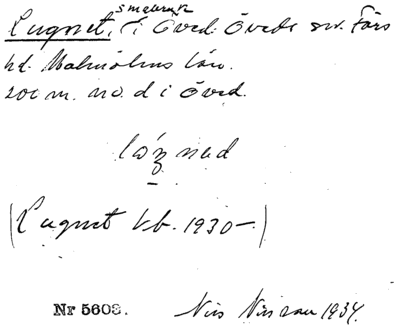 småbruk
Lugnet, i Öved Öveds sn. Färs
hd. Malmöhus län.
200 m. no. d i Öved.
(Lugnet kb. 1930–)
Nr 5608. Nils Nilsson 1934.